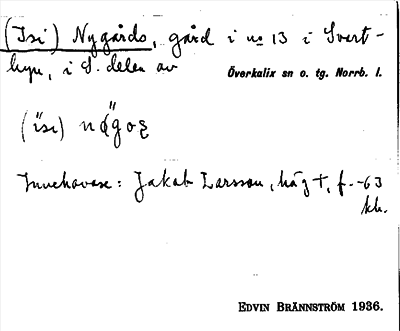 (Isi) Nygårds, gård i no 13 i Svart-
byn, i S. delen av
Överkalix sn o. tg. Norrb. l.
Innehavare: Jakob Larsson, häg †, f. -63
kh.
EDVIN BRÄNNSTRÖM 1936.